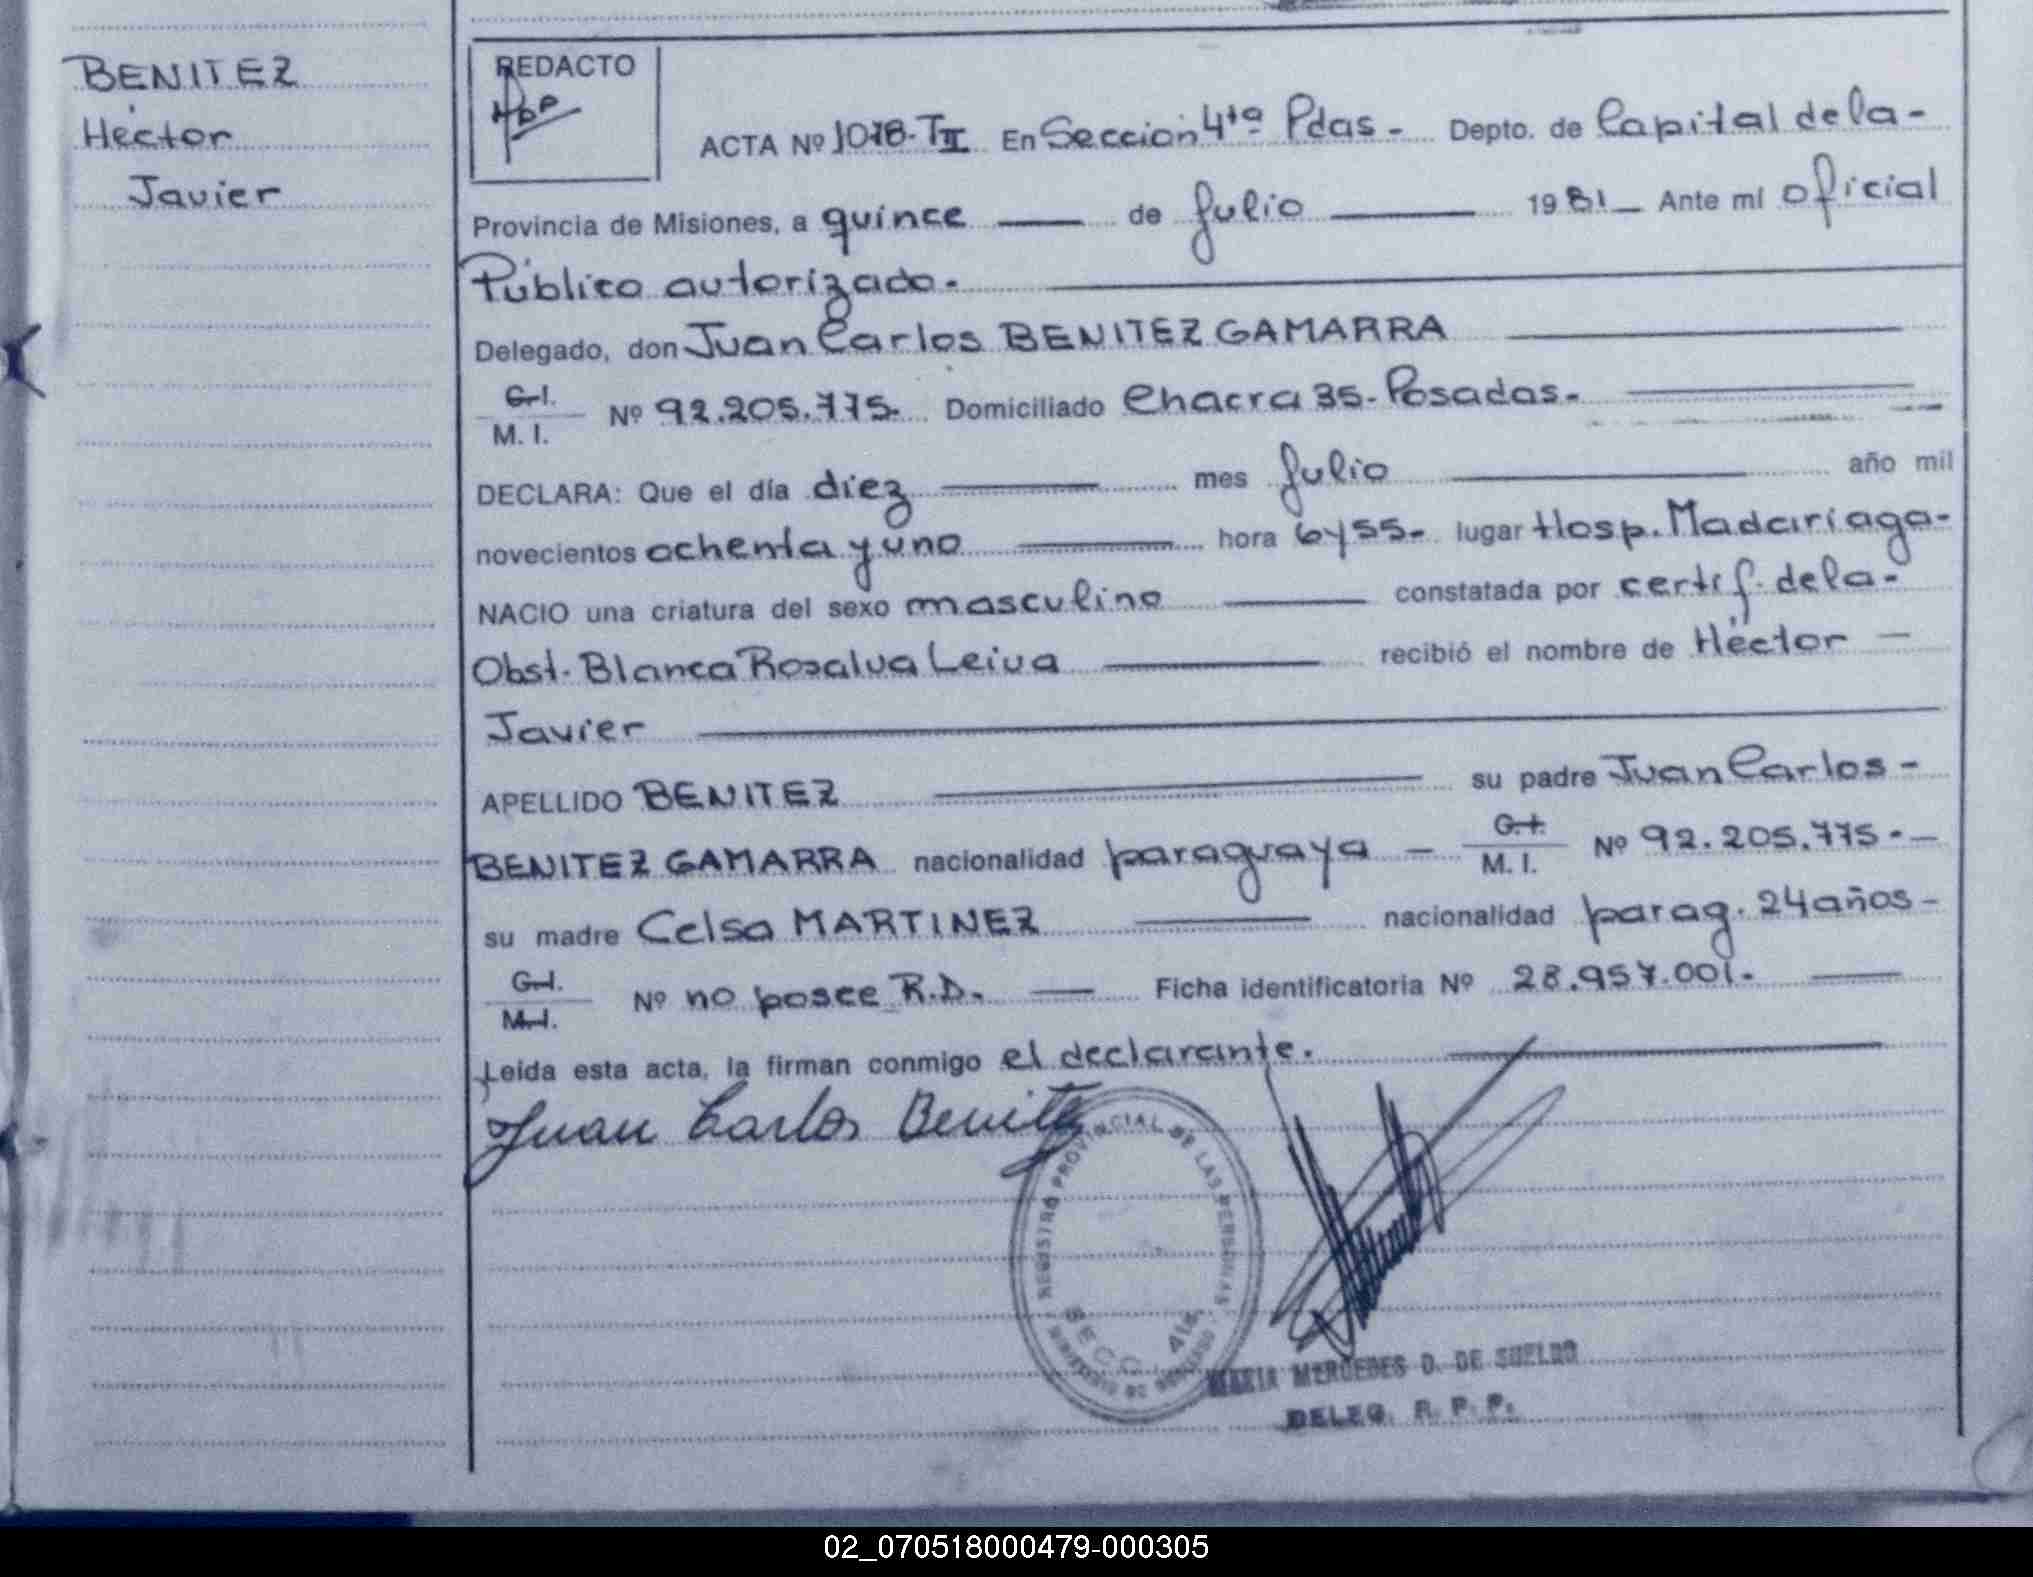 BENITEZ
Héctor
Javier
REDACTO
ACTA Nº 1078-TII En Sección 4ta Pdas- Depto. de Capital de la-
Provincia de Misiones, a quince de Julio 1981 Ante mí oficial
Público autorizado.
Delegado, don Juan Carlos BENITEZ GAMARRA
C.I.
M. I. Nº 92.205.775- Domiciliado Chacra 35- Posadas-
DECLARA: Que el día diez mes Julio año mil
novecientos ochenta y uno hora 6 y 55- lugar Hosp. Madariaga-
NACIO una criatura del sexo masculino constatada por certif. de la-
Obst. Blanca Rosalva Leiva recibió el nombre de Héctor
Javier
APELLIDO BENITEZ su padre Juan Carlos-
BENITEZ GAMARRA nacionalidad paraguaya C.I. M. I. Nº 92.205.775-
su madre Celsa MARTINEZ nacionalidad parag. 24 años-
C.I.
M.I. Nº no posee R.D. Ficha identificatoria Nº 28.957.001-
Leída esta acta, la firman conmigo el declarante.
Juan Carlos Benitez
REGISTRO PROVINCIAL DE LAS PERSONAS
SECC. 4ta.
MARIA MERCEDES D. DE SUELDO
DELEG. R. P. P.
02_070518000479-000305